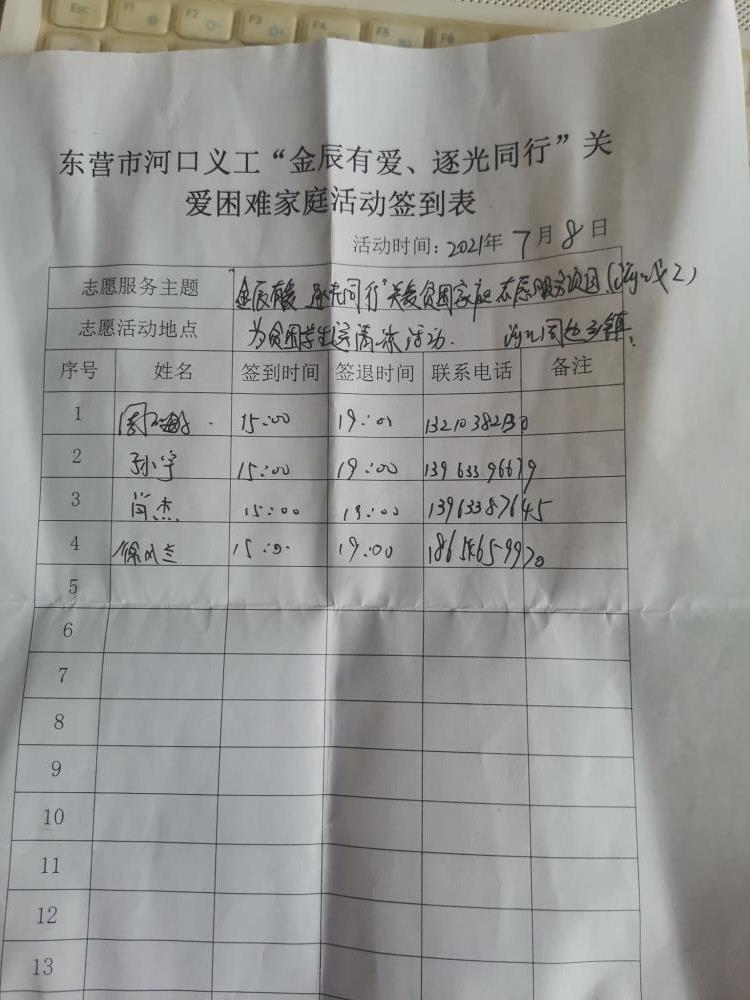 Esc F1 F2 F3 F4 F5 F6
东营市河口义工“金辰有爱、逐光同行”关
爱困难家庭活动签到表
活动时间：2021年7月8日
志愿服务主题 金辰有爱 逐光同行"关爱贫困家庭志愿服务项目
志愿活动地点 为贫困学生送清凉活动. 河口周边乡镇.
序号 姓名 签到时间 签退时间 联系电话 备注
1 15:00 19:00
2 孙宇 15:00 19:00 13963396679
3 肖杰 15:00 19:00 13963387645
4 徐 15:00 19:00
5
6
7
8
9
10
11
12
13